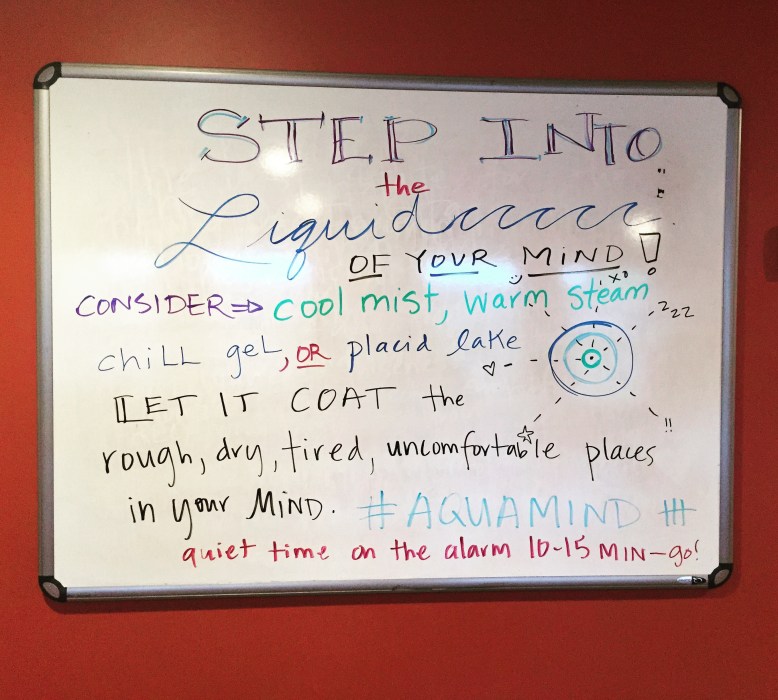 STEP INTO
the
Liquid
OF YOUR MiND!
CONSIDER⇒ cool mist, warm steam
xo
zzz
chiLL geL, OR placid lake
!!
LET IT COAT the
rough, dry, tired, uncomfortable places
in your MiND. #AQUAMIND
quiet time on the alarm 10-15 MIN-go!